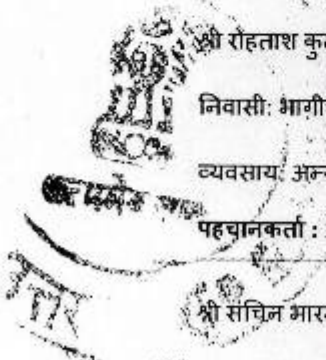 श्री रोहताश कु
निवासी: भागी
व्यवसाय: अन्
पहचानकर्ता :
श्री सचिन भार